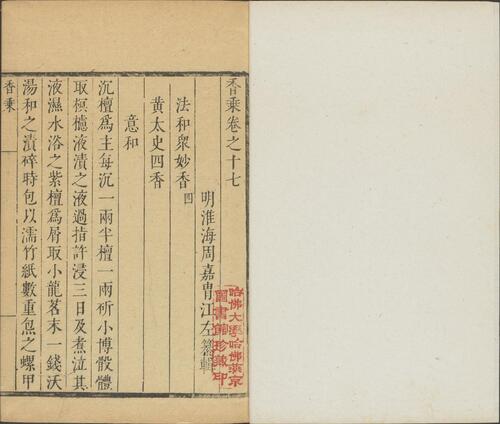 香乘卷之十七
明淮海周嘉胄江左纂輯
法和衆妙香四
黄太史四香
意和
沉檀爲主每沉一兩半檀一兩斫小博骰體
取榠樝液漬之液過指許浸三日及煮泣其
液濕水浴之紫檀爲屑取小龍茗末一錢沃
湯和之漬碎時包以濡竹紙數重炰之螺甲
香乘
哈佛大學哈佛燕京
圖書館珍藏印